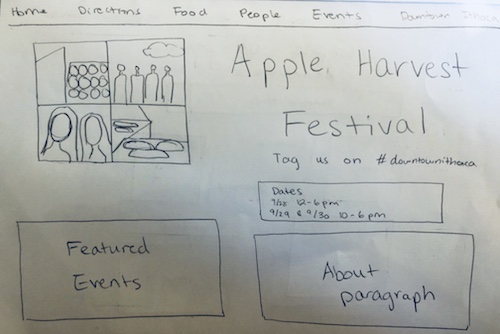 Home Directions Food People Events Downtown Ithaca
Apple Harvest
Festival
Tag us on #downtownithaca
Dates
9/28 12-6pm
9/29 & 9/30 10-6pm
Featured
Events
About
paragraph